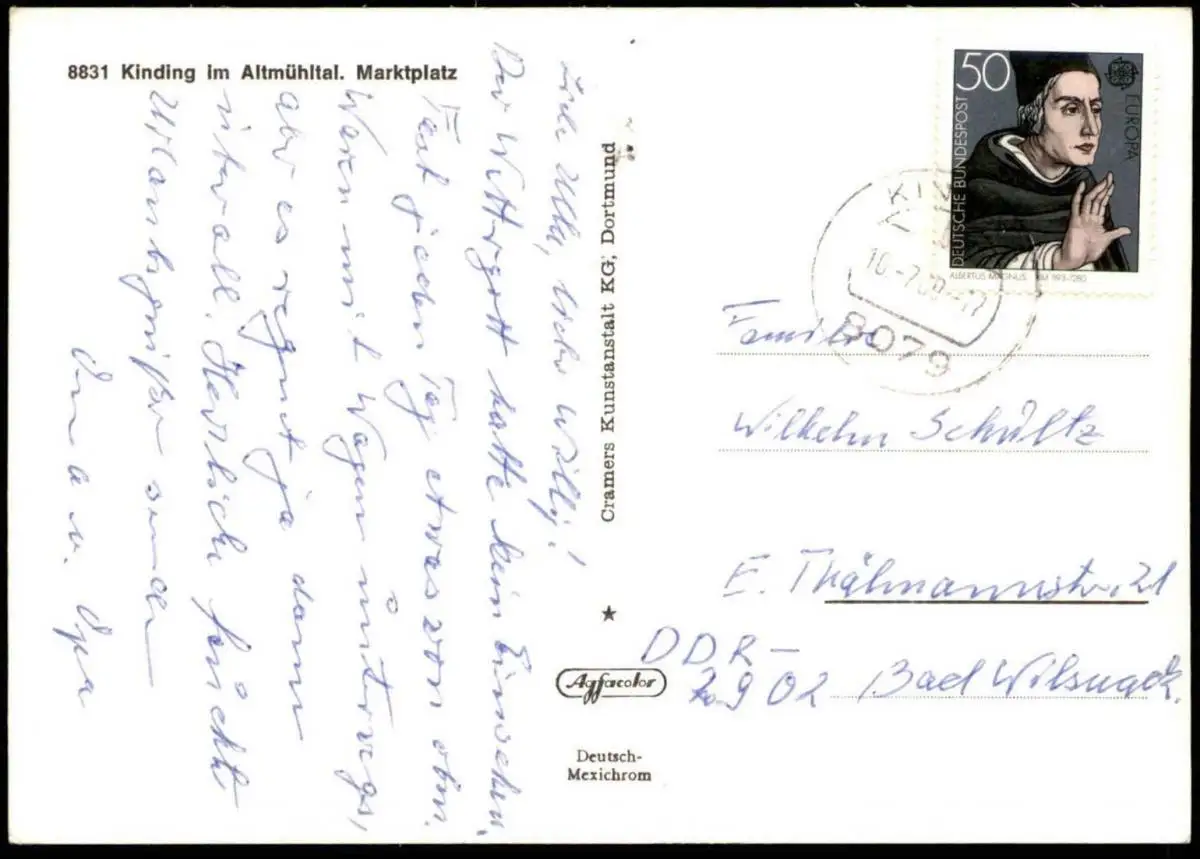 8831 Kinding im Altmühltal. Marktplatz
Liebe Ulla, lieber Willy!
Der Wettergott hatte kein Einsehen.
Fast jeden Tag etwas von oben.
Waren mit Wagen unterwegs,
aber es regnet ja dann
überall. Herzliche feucht
Urlaubsgrüße senden
Oma u. Opa
Cramers Kunstanstalt KG, Dortmund
★
Agfacolor
Deutsch-
Mexichrom
50
DEUTSCHE BUNDESPOST
EUROPA
ALBERTUS MAGNUS 1193-1280
8079
Familie
Wilhelm Schultz
E. Thälmannstr. 21
DDR-
2902 Bad Wilsnack